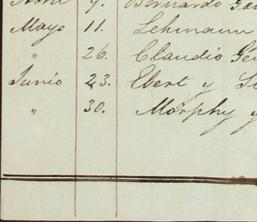 9. Bernardo
Mayo 11. Lehmann
" 26. Claudio
Junio 23. Ebert y
" 30. Morphy y